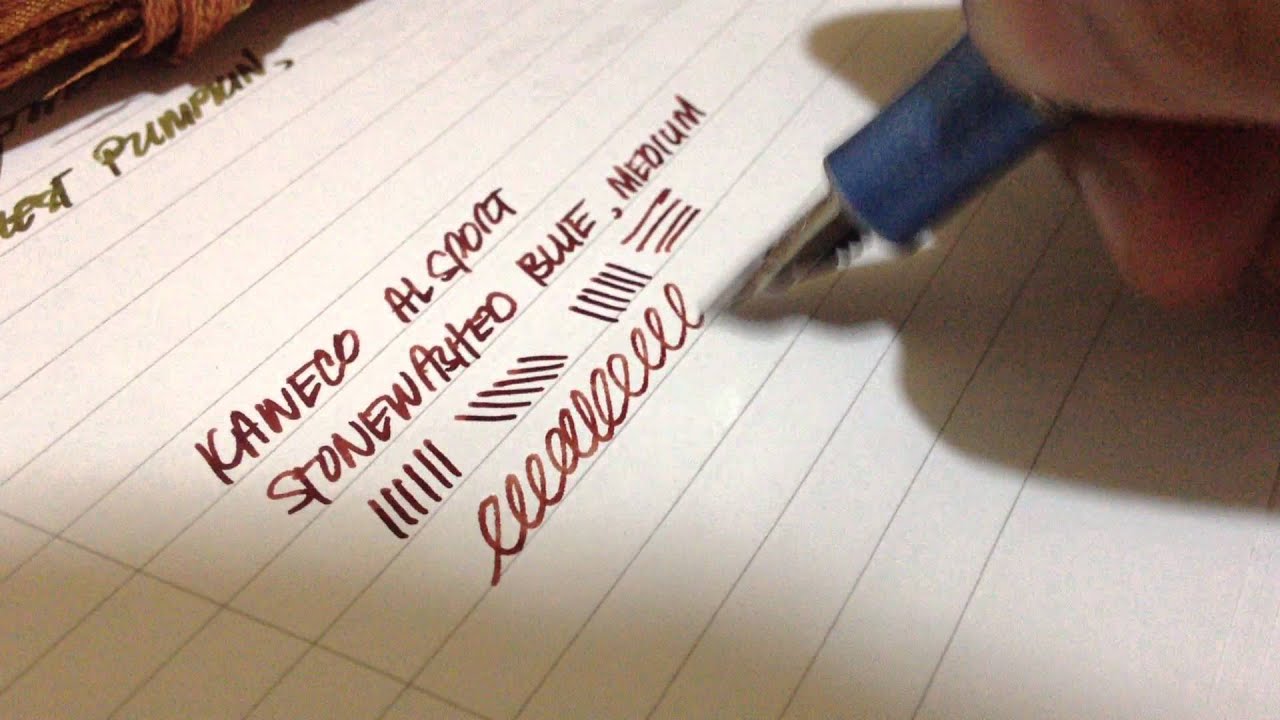 PUMPKIN,
KAWECO AL SPORT
STONEWASHED BLUE, MEDIUM